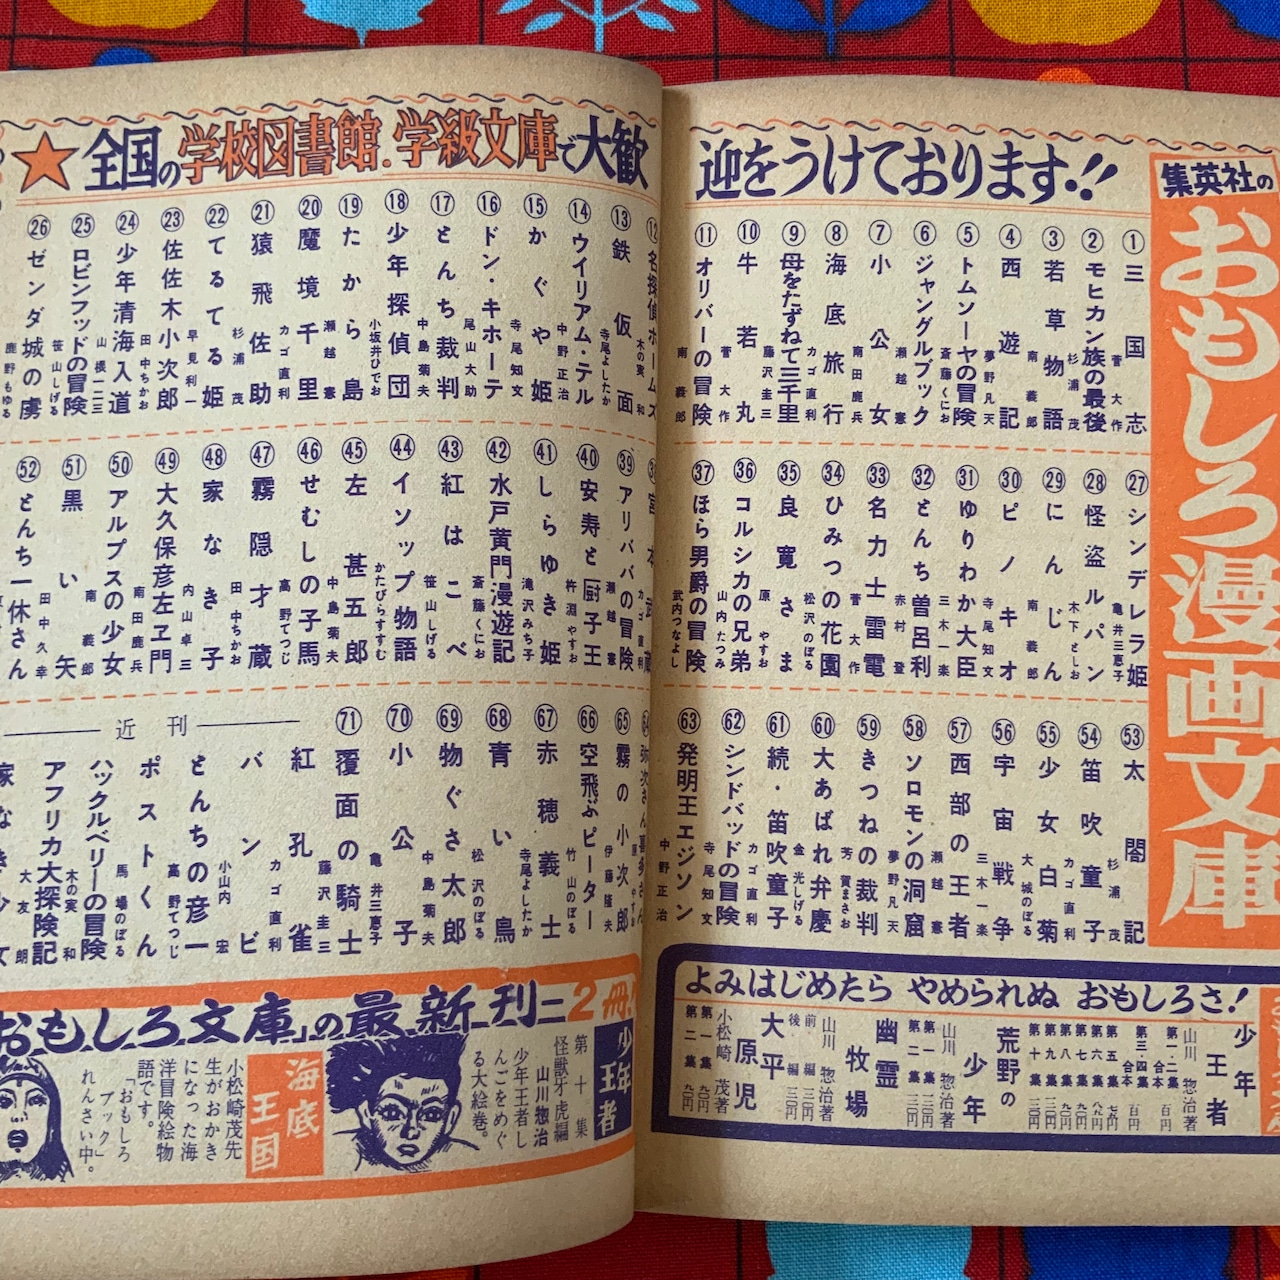 ★全国の学校図書館・学級文庫で大歓
迎をうけております!!
集英社の
おもしろ漫画文庫
①三国志 菅大作
②モヒカン族の最後 杉浦茂
③若草物語 南義郎
④西遊記 夢野凡天
⑤トムソーヤの冒険 斎藤くにお
⑥ジャングルブック 瀬越憲
⑦小公女 南田鹿兵
⑧海底旅行 カゴ直利
⑨母をたずねて三千里 藤沢圭三
⑩牛若丸 菅大作
⑪オリバーの冒険 南義郎
⑫名探偵ホームズ 木の実和
⑬鉄仮面 寺尾よしたか
⑭ウイリアム・テル 中野正治
⑮かぐや姫 寺尾知文
⑯ドン・キホーテ 尾山大助
⑰とんち裁判 中島菊夫
⑱少年探偵団 小坂井ひでお
⑲たから島 瀬越憲
⑳魔境千里 カゴ直利
㉑猿飛佐助 杉浦茂
㉒てるてる姫 早見利一
㉓佐佐木小次郎 田中ちかお
㉔少年清海入道 山根一二三
㉕ロビンフッドの冒険 笹山しげる
㉖ゼンダ城の虜 鹿野もゆる
㉗シンデレラ姫 亀井三恵子
㉘怪盗ルパン 木下としお
㉙にんじん 南義郎
㉚ピノキオ 寺尾知文
㉛ゆりわか大臣 三木一楽
㉜とんち曽呂利 赤村登
㉝名力士雷電 菅大作
㉞ひみつの花園 松沢のぼる
㉟良寛さま 原やすお
㊱コルシカの兄弟 山内たつみ
㊲ほら男爵の冒険 武内つなよし
宮本武蔵 カゴ直利
㊴アリババの冒険 瀬越憲
㊵安寿と厨子王 杵淵やすお
㊶しらゆき姫 滝沢みち子
㊷水戸黄門漫遊記 斎藤くにお
㊸紅はこべ 笹山しげる
㊹イソップ物語 かたびらすすむ
㊺左甚五郎 中島菊夫
㊻せむしの子馬 高野てつじ
㊼霧隠才蔵 田中ちかお
㊽家なき子 内山卓三
㊾大久保彦左ヱ門 南田鹿兵
㊿アルプスの少女 南義郎
51黒い矢 田中久幸
52とんち一休さん
53太閤記 杉浦茂
54笛吹童子 カゴ直利
55少女白菊 大城のぼる
56宇宙戦争 三木一楽
57西部の王者 瀬越憲
58ソロモンの洞窟 夢野凡天
59きつねの裁判 芳賀まさお
60大あばれ弁慶 金光しげる
61続・笛吹童子 カゴ直利
62シンドバッドの冒険 寺尾知文
63発明王エジソン 中野正治
64弥次さん喜多さん 原やすお
65霧の小次郎 伊藤隆夫
66空飛ぶピーター 竹山のぼる
67赤穂義士 寺尾よしたか
68青い鳥 松沢のぼる
69物ぐさ太郎 中島菊夫
70小公子 亀井三恵子
71覆面の騎士 藤沢圭三
紅孔雀 カゴ直利
バンビ 小山内宏
とんちの彦一 高野てつじ
ポストくん 馬場のぼる
ハックルベリーの冒険 木の実和
アフリカ大探険記 大友朗
家なき少女
近刊
よみはじめたら やめられぬ おもしろさ!
少年王者
山川惣治著
第一・二集 合本 百円
第三・四集 合本 百円
第五集
第六集
第八集 九〇円
第九集
第十集
荒野の少年
山川惣治著
第一集
第二集
幽霊牧場
山川惣治著
前・後編
大平原児
小松崎茂著
第一集 九〇円
第二集 九〇円
おもしろ文庫」の最新刊=2冊!
少年王者
第十集
怪獣牙虎編
山川惣治
少年王者しんごをめぐる大絵巻。
海底王国
小松崎茂先
生がおかき
になった海
洋冒険絵物
語です。
「おもしろ
ブック」
れんさい中。